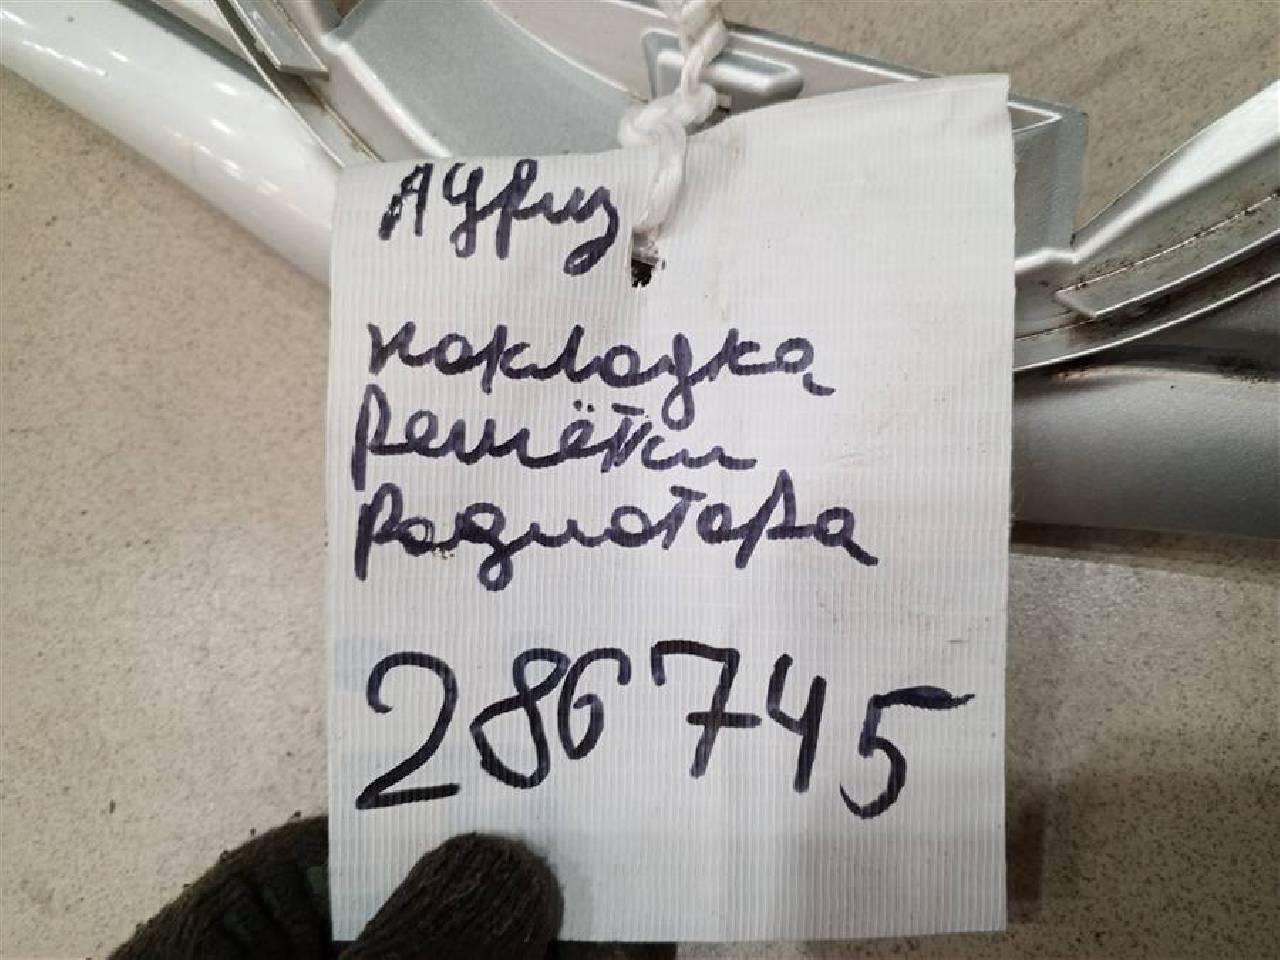 Ауриз
накладка
решётки
радиатора
286745